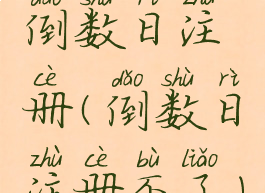 dǎo shǔ rì zhù
倒数日注
cè dǎo shù rì
册(倒数日
zhù cè bù liǎo
注册不了)